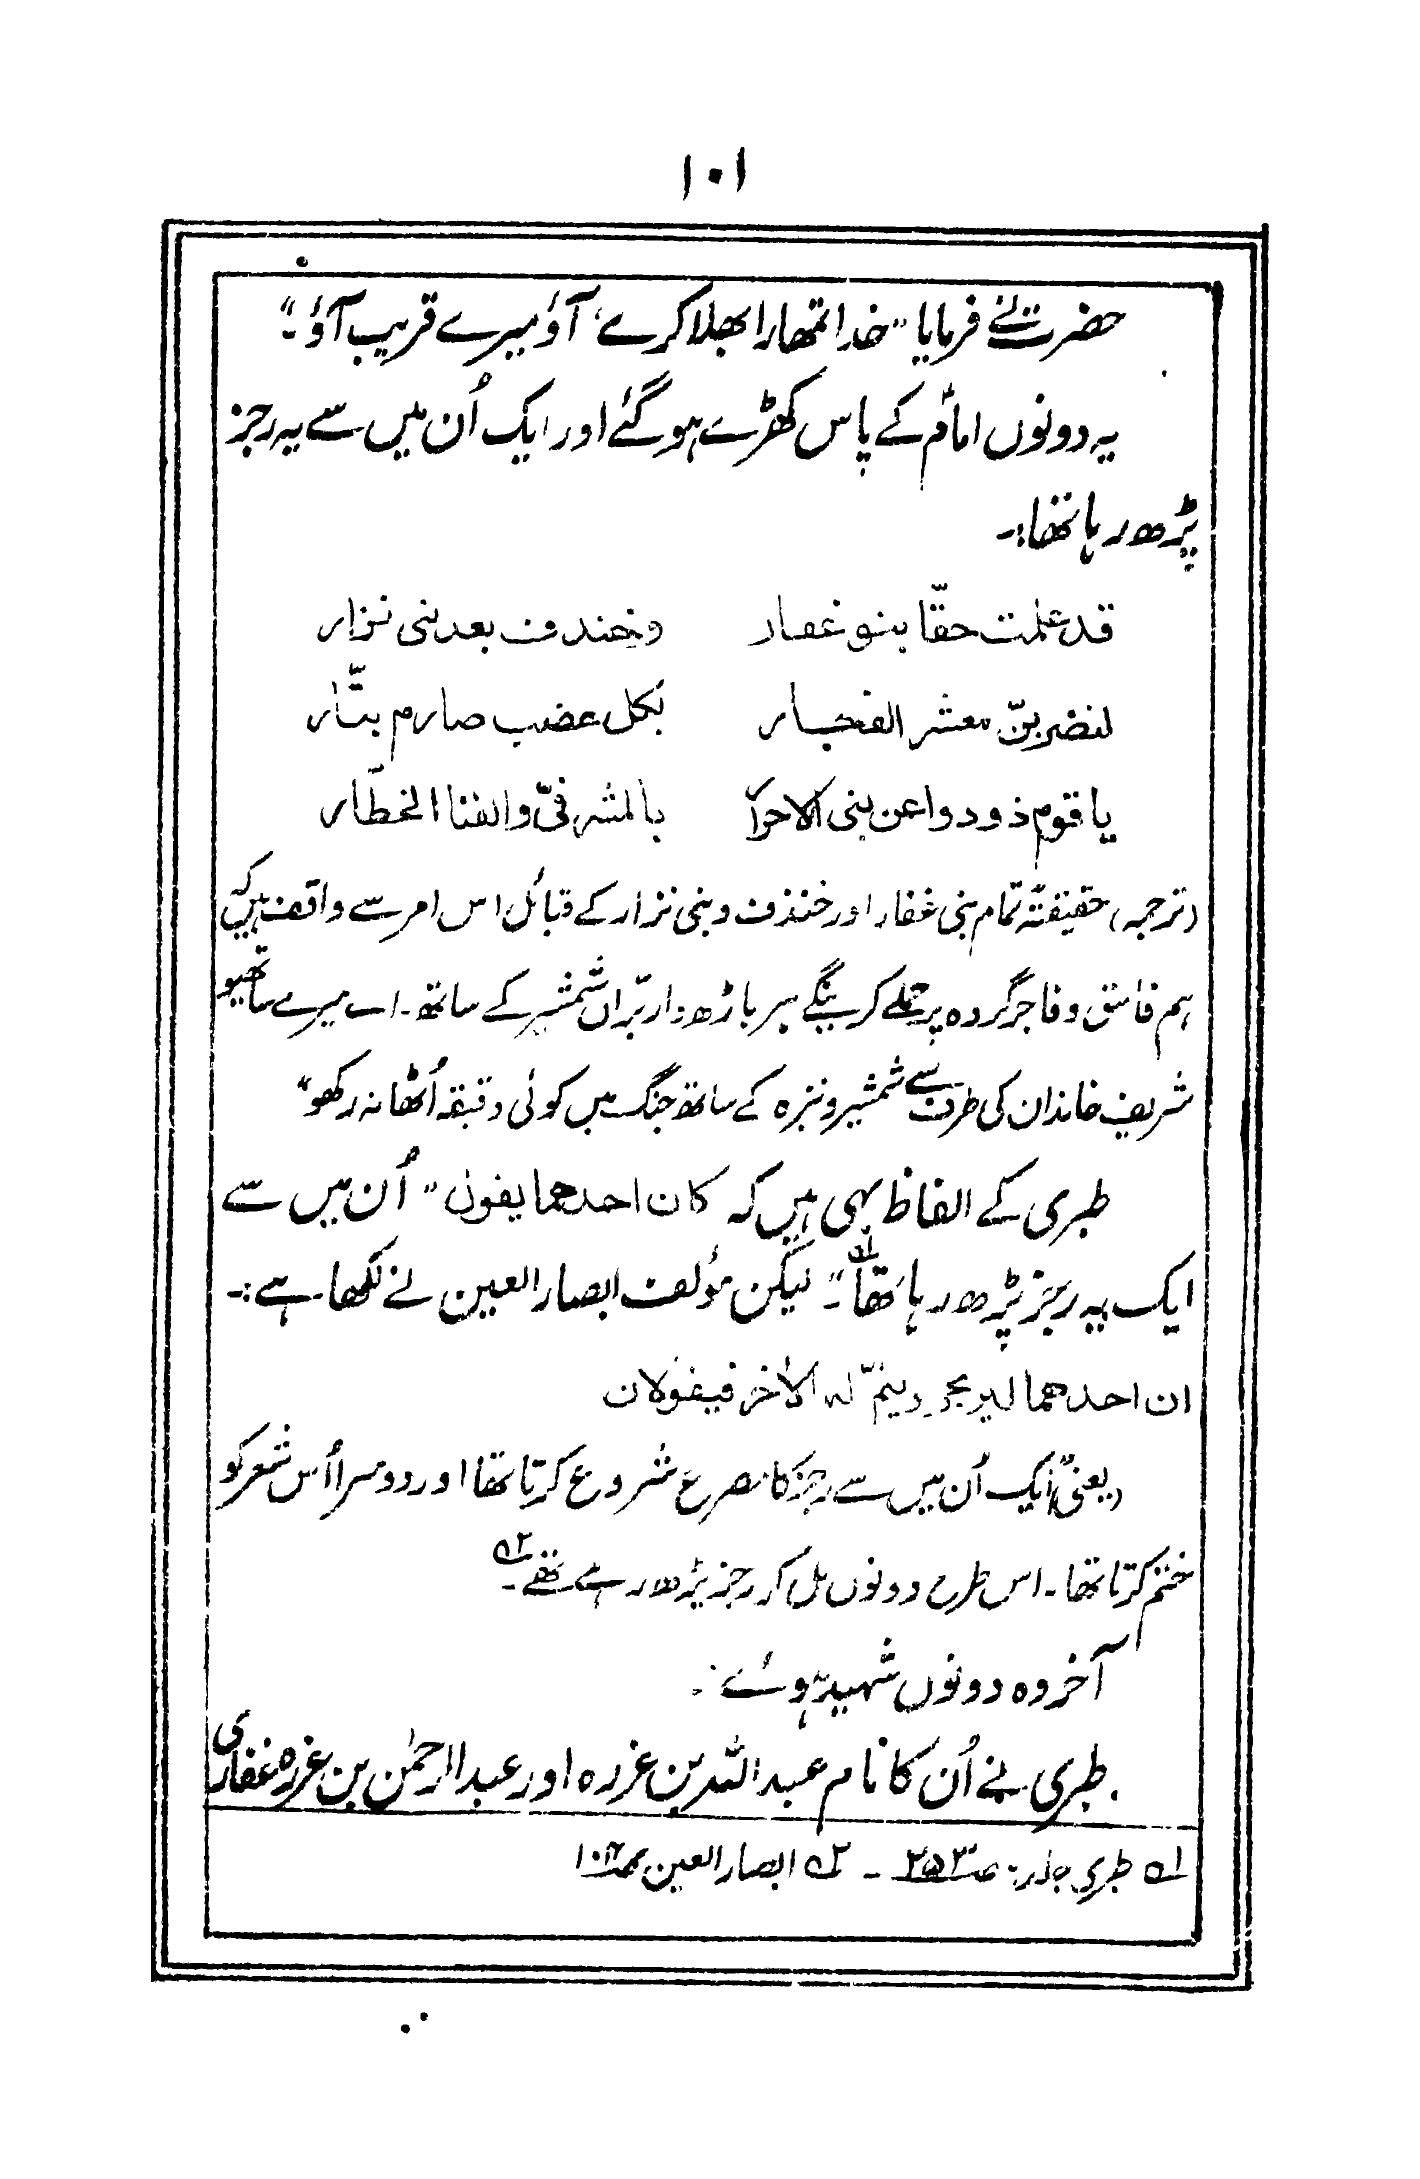 ۱۰۱
حضرت نے فرمایا "خدا تمھارا بھلا کرے، آؤ میرے قریب آؤ۔"
یہ دونوں امامؑ کے پاس کھڑے ہو گئے اور ایک اُن میں سے یہ رجز
پڑھ رہا تھا:۔
قد علمت حقّا بنو غفار وخندف بعد بنی نزار
لنضربنّ معشر الفجار بکل عضب صارم بتّار
یا قوم ذودوا عن بنی الاحرار بالمشرفیّ والقنا الخطّار
(ترجمہ) حقیقتہً تمام بنی غفار اور خندف و بنی نزار کے قبائل اس امر سے واقف ہیں کہ
ہم فاسق و فاجر گروہ پر حملے کرینگے ہر باڑھ دار برّاں شمشیر کے ساتھ۔ اے میرے ساتھیو
شریف خاندان کی طرف سے شمشیر و نیزہ کے ساتھ جنگ میں کوئی دقیقہ اُٹھا نہ رکھو"
طبری کے الفاظ یہی ہیں کہ کان احدھما یقول "اُن میں سے
ایک یہ رجز پڑھ رہا تھا۱؎۔" لیکن مؤلف ابصار العین نے لکھا ہے:۔
ان احدھما لیرتجز ویتمّ لہ الآخر فیقولان
(یعنی) ایک اُن میں سے رجز کا مصرع شروع کرتا تھا اور دوسرا اُس شعر کو
ختم کرتا تھا۔ اس طرح دونوں مل کر رجز پڑھ رہے تھے۲؎۔
آخر وہ دونوں شہید ہوئے۔
طبری نے اُن کا نام عبداللہ بن عزرہ اور عبدالرحمٰن بن عزرہ غفاری
۱؎ طبری جلد ص۲۵۳ ۔ ۲؎ ابصار العین ص۱۰۴